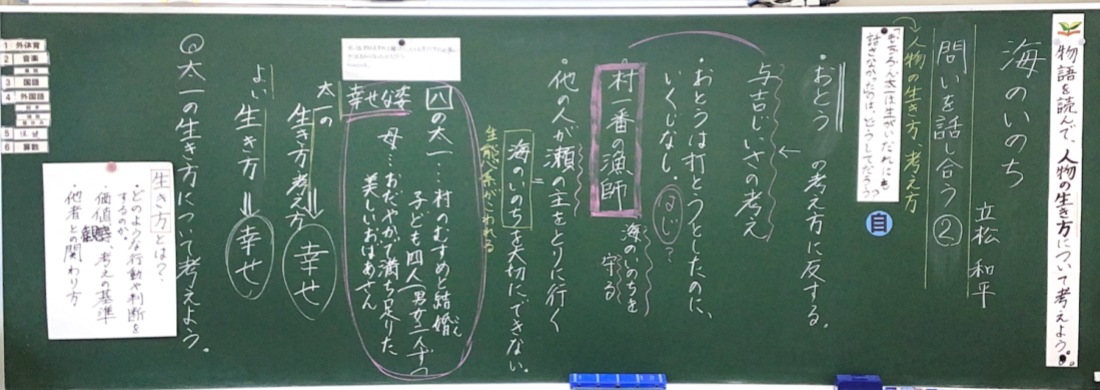 物語を読んで、人物の生き方について考えよう。
海のいのち
立松 和平
問いを話し合う②
人物の生き方、考え方
「もちろん太一は生がいだれにも
話さなかったのは、どうしてだろう?
自
・おとう の考え方に反する。
←
与吉じいさの考え
・おとうは打とうとしたのに、
いくじなし。はじ?
村一番の漁師
海のいのちを
守る
・他の人が瀬の主をとりに行く
海のいのちを大切に、できない。
生態系がこわれる
四の太一…村のむすめと結婚
こん
子ども四人(男女二人ずつ
幸せな姿
母…おだやかで満ち足りた
美しいおばあさん
太一の
生き方考え方⇒幸せ
よい生き方⇒幸せ
◎太一の生き方について考えよう。
生き方とは?
・どのような行動や判断を
するのか。
・価値観 考えの基準
・他者との関わり方
1 外体育
2 音楽
3 国語
4 外国語
5
6 算数